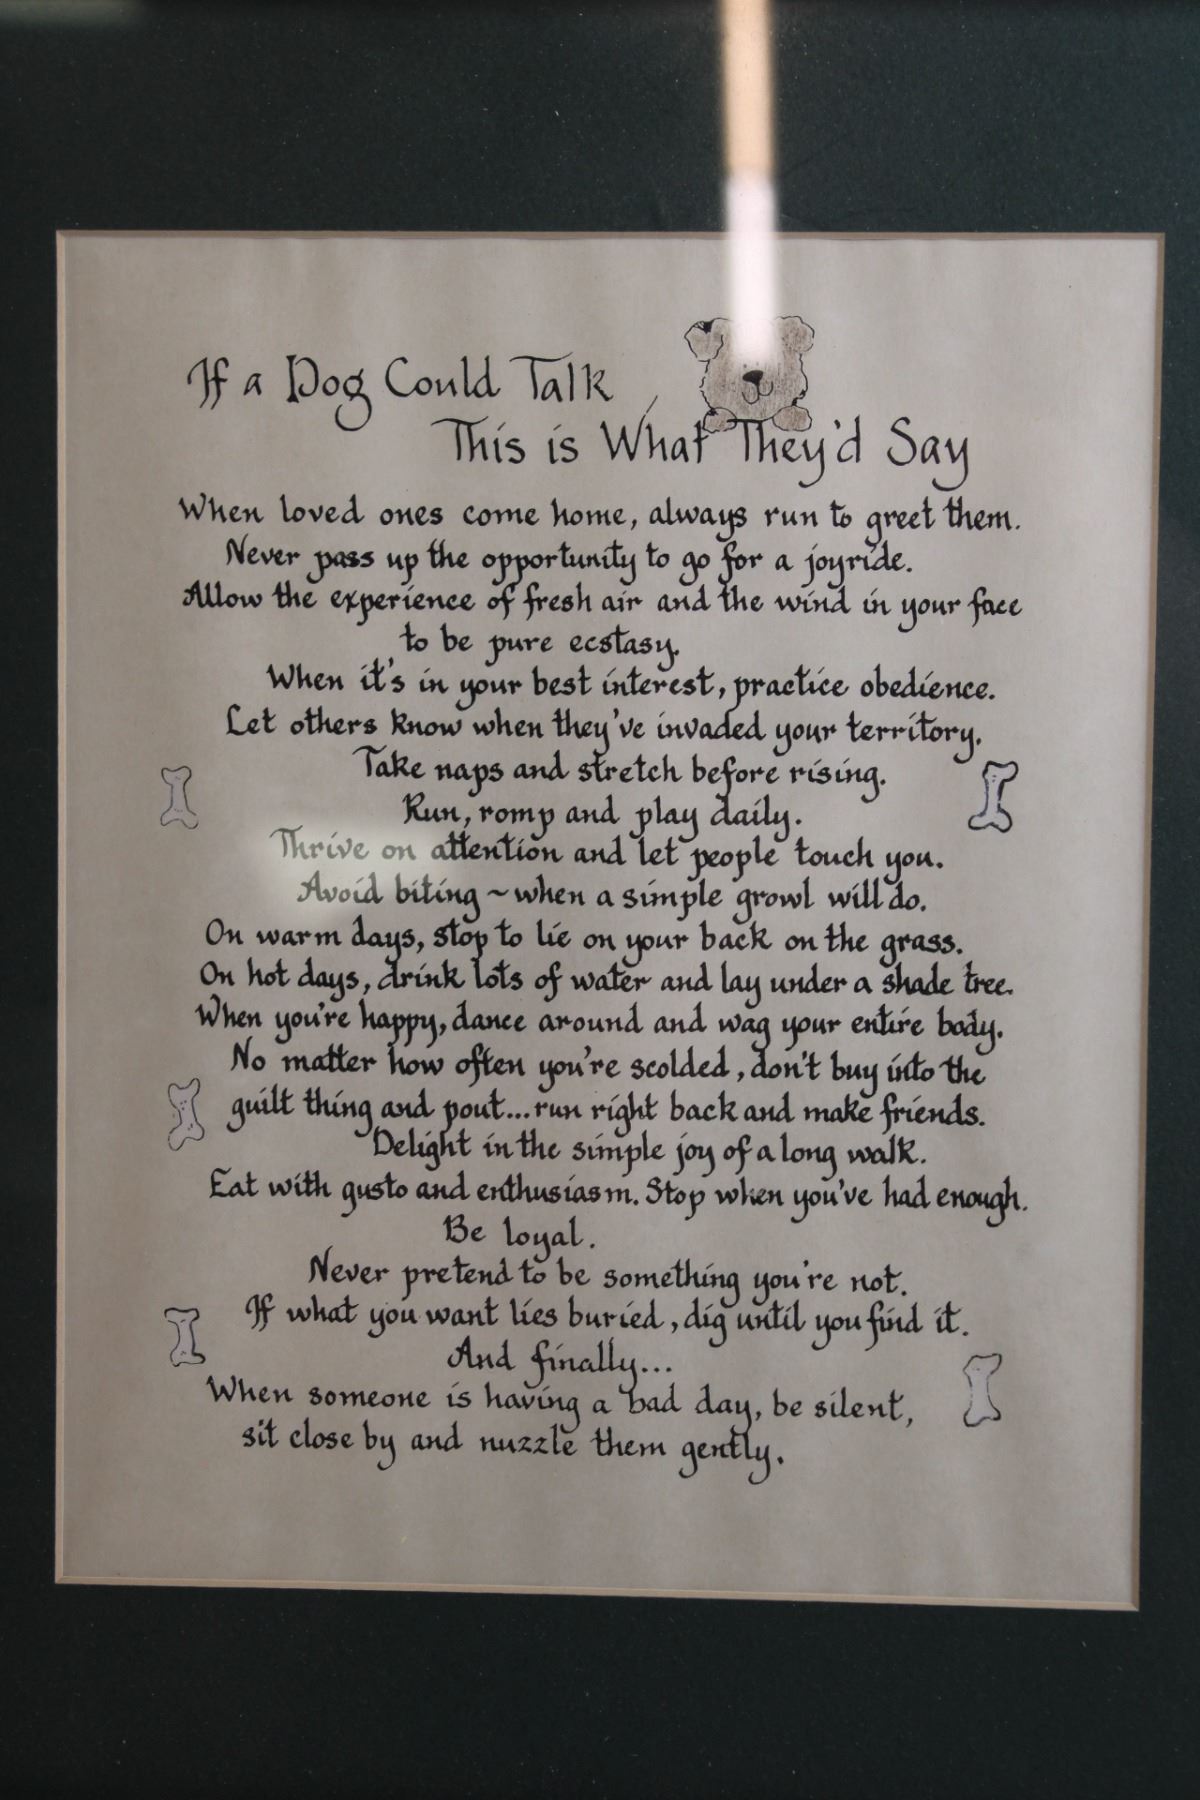 If a Dog Could Talk
This is What They'd Say
When loved ones come home, always run to greet them.
Never pass up the opportunity to go for a joyride.
Allow the experience of fresh air and the wind in your face
to be pure ecstasy.
When it's in your best interest, practice obedience.
Let others know when they've invaded your territory.
Take naps and stretch before rising.
Run, romp and play daily.
Thrive on attention and let people touch you.
Avoid biting ~ when a simple growl will do.
On warm days, stop to lie on your back on the grass.
On hot days, drink lots of water and lay under a shade tree.
When you're happy, dance around and wag your entire body.
No matter how often you're scolded, don't buy into the
guilt thing and pout... run right back and make friends.
Delight in the simple joy of a long walk.
Eat with gusto and enthusiasm. Stop when you've had enough.
Be loyal.
Never pretend to be something you're not.
If what you want lies buried, dig until you find it.
And finally...
When someone is having a bad day, be silent,
sit close by and nuzzle them gently.